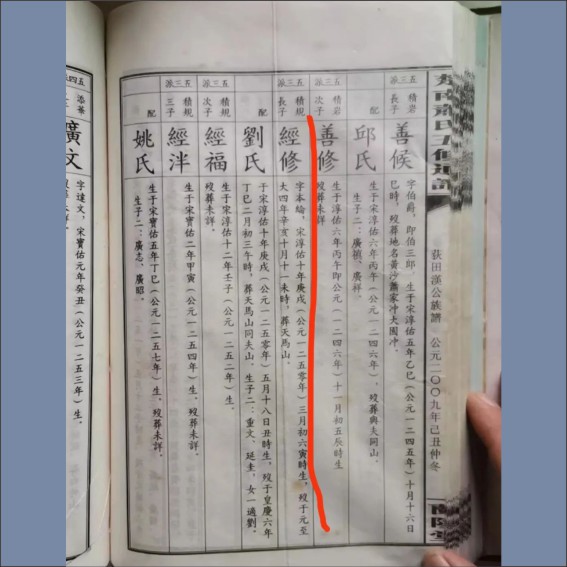 荻田漢公族譜 公元二〇〇九年己丑仲冬
五三派
積岩長子
善候
字伯爵,即伯三郎,生于宋淳佑五年乙巳(公元一二四五年)十月十六日
巳時,歿葬地名黃沙蕭家冲大園冲.
配
邱氏
生于宋淳佑六年丙午(公元一二四六年),歿葬與夫同山.
生子二:廣禎、廣祥.
五三派
積岩次子
善修
生于淳佑六年丙午即公元(一二四六年)十一月初五辰時生
歿葬未詳.
五三派
積規長子
經修
字本綸,宋淳佑十年庚戌(公元一二五零年)三月初六寅時生,歿于元至
大四年辛亥十月十一未時,葬天馬山.
配
劉氏
于宋淳佑十年庚戌(公元一二五零年)五月十八日丑時生,歿于皇慶六年
丁巳二月初三午時,葬天馬山同夫山.生子二:重文、延圭,女一適劉.
五三派
積規次子
經福
生于宋淳佑十二年壬子(公元一二五二年)生.
歿葬未詳.
五三派
積規三子
經泮
生于宋寶佑二年甲寅(公元一二五四年)生、歿葬未詳.
配
姚氏
生于宋寶佑五年丁巳(公元一二五七年)生、歿葬未詳.
生子二:廣志、廣昭.
五四
添
廣文
字達文,宋寶佑元年癸丑(公元一二五三年)生.